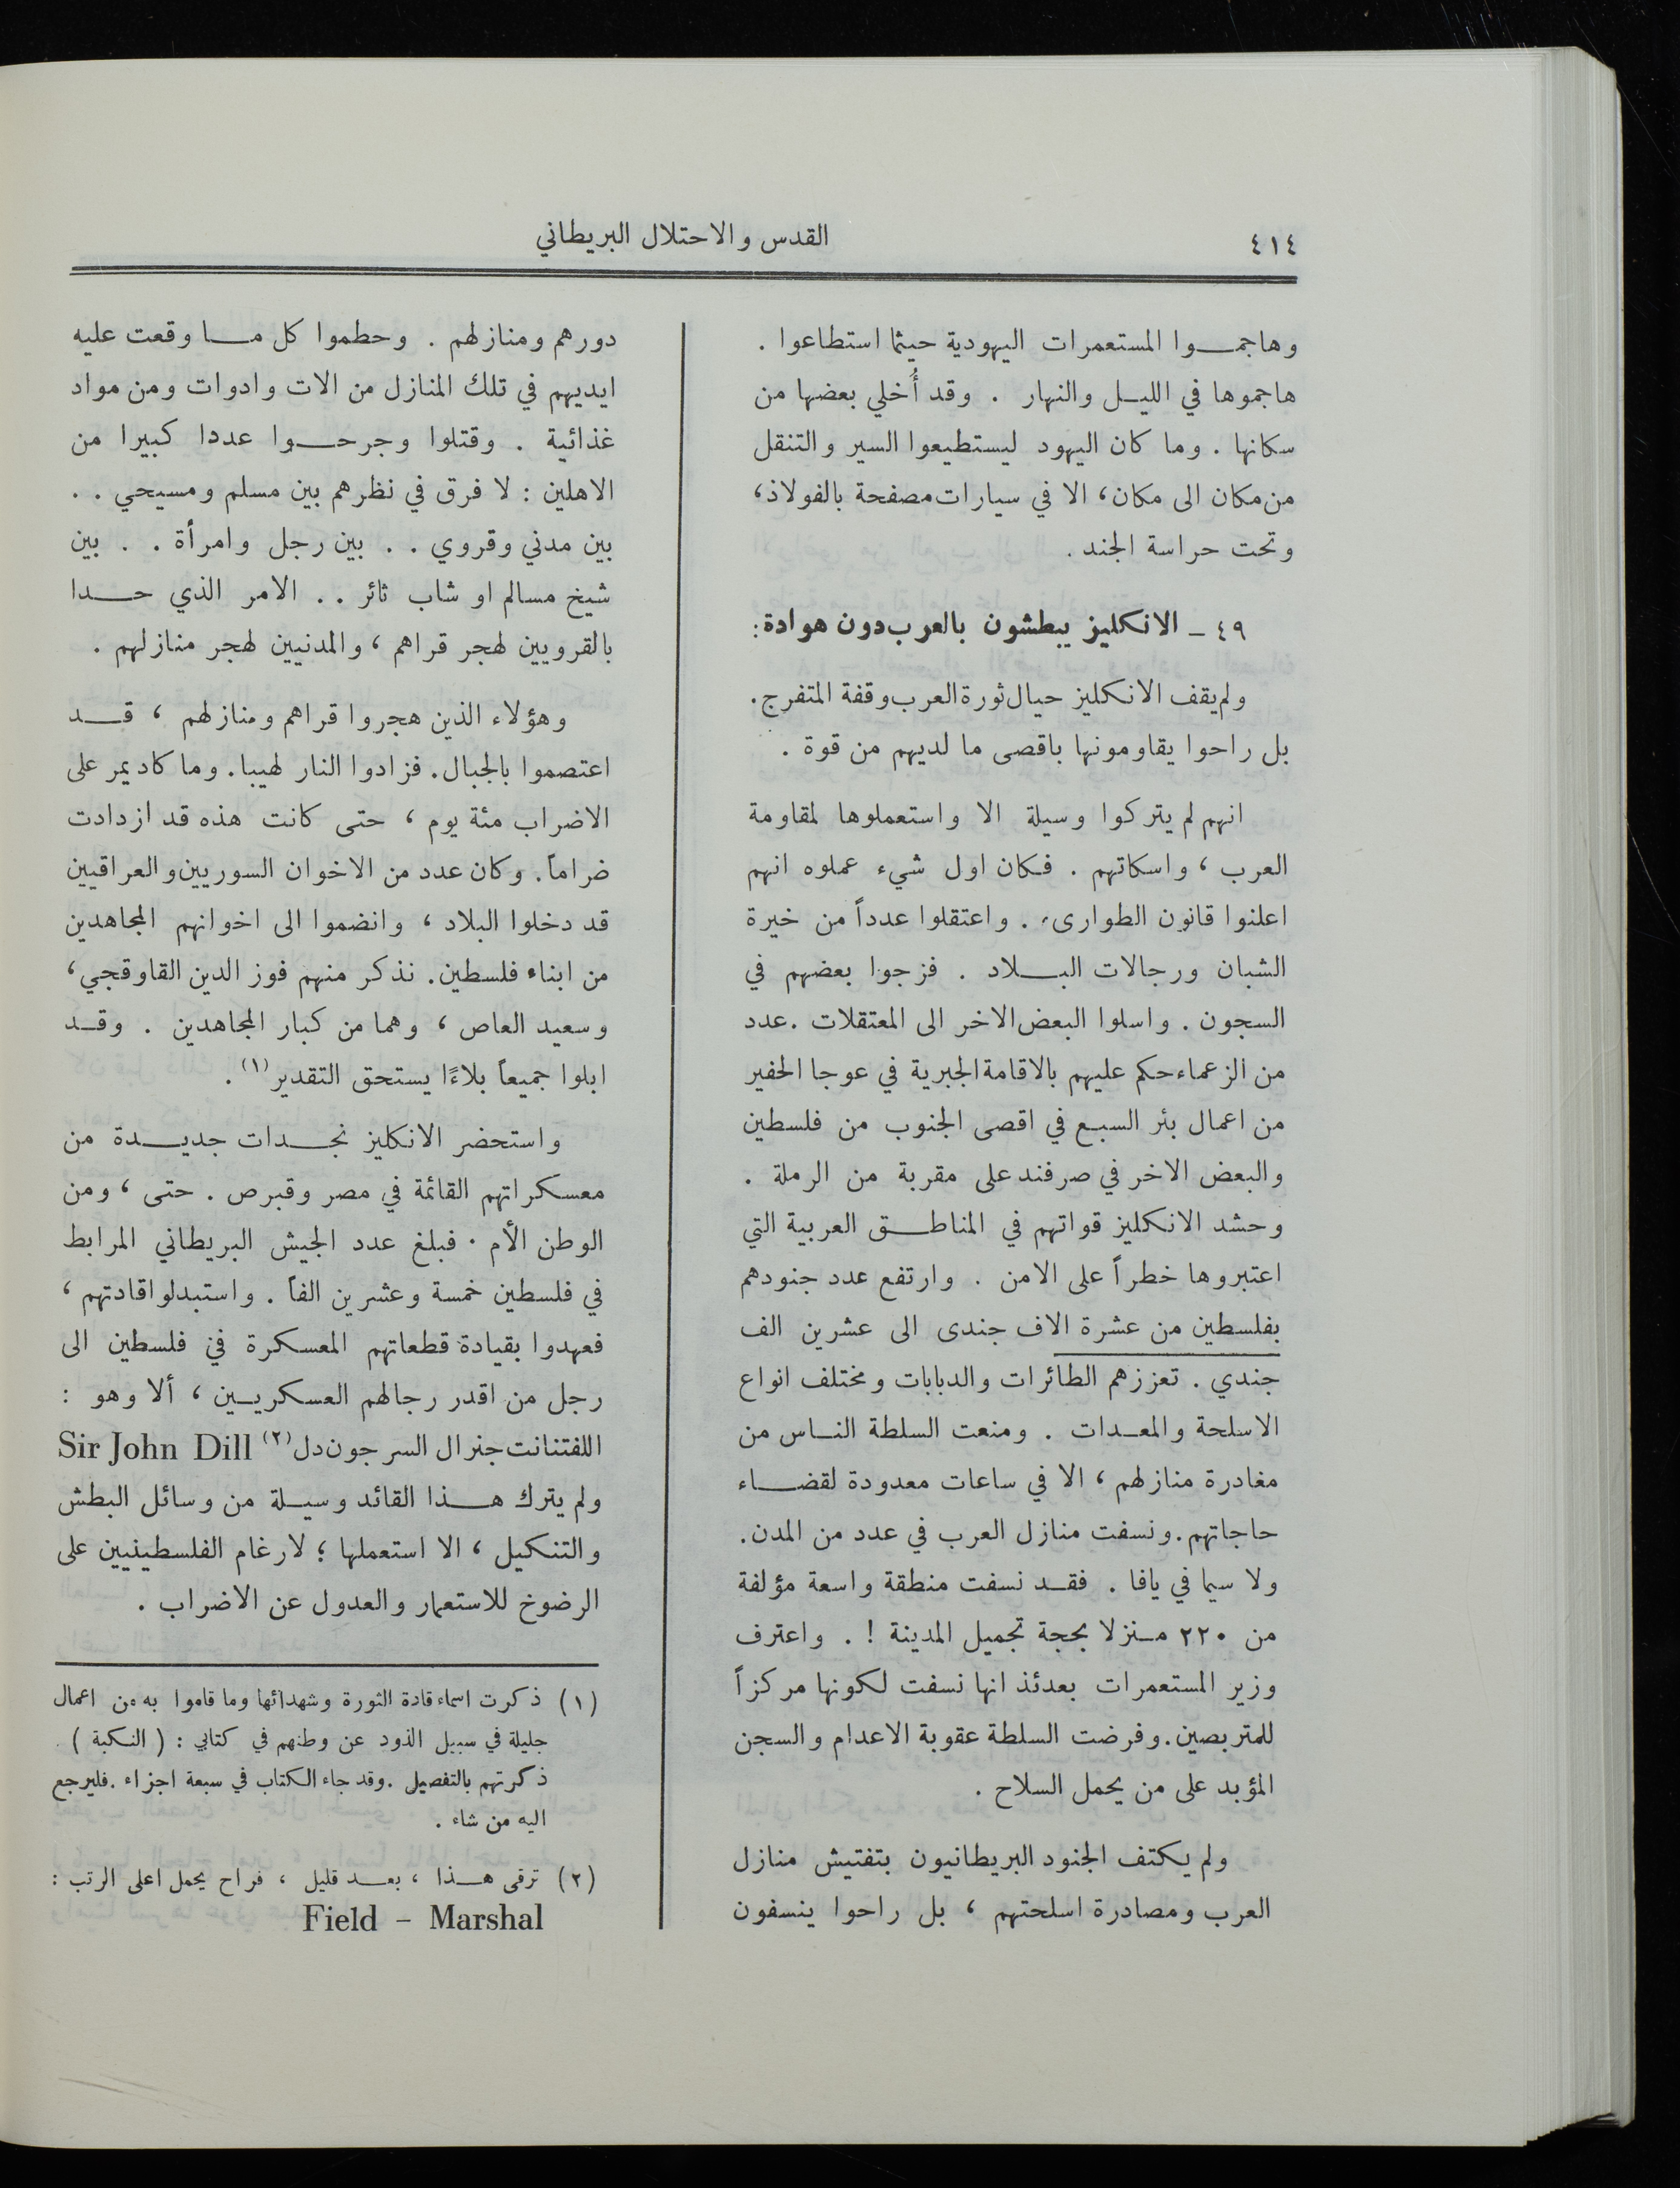 ٤١٤
القدس والاحتلال البريطاني
وهاجمــوا المستعمرات اليهودية حيثما استطاعوا .
هاجموها في الليل والنهار . وقد أُخلي بعضها من
سكانها . وما كان اليهود ليستطيعوا السير والتنقل
من مكان الى مكان، الا في سيارات مصفحة بالفولاذ،
وتحت حراسة الجند .
٤٩ ـ الانكليز يبطشون بالعرب دون هوادة :
ولم يقف الانكليز حيال ثورة العرب وقفة المتفرج .
بل راحوا يقاومونها باقصى ما لديهم من قوة .
انهم لم يتركوا وسيلة الا واستعملوها لمقاومة
العرب ، واسكاتهم . فكان اول شيء عملوه انهم
اعلنوا قانون الطوارىء . واعتقلوا عدداً من خيرة
الشبان ورجالات البــلاد . فزجوا بعضهم في
السجون . واسلوا البعض الاخر الى المعتقلات . عدد
من الزعماء حكم عليهم بالاقامة الجبرية في عوجا الحفير
من اعمال بئر السبع في اقصى الجنوب من فلسطين
والبعض الاخر في صرفند على مقربة من الرملة .
وحشد الانكليز قواتهم في المناطــق العربية التي
اعتبروها خطراً على الامن . وارتفع عدد جنودهم
بفلسطين من عشرة الاف جندى الى عشرين الف
جندي . تعززهم الطائرات والدبابات ومختلف انواع
الاسلحة والمعدات . ومنعت السلطة النــاس من
مغادرة منازلهم ، الا في ساعات معدودة لقضــاء
حاجاتهم . ونسفت منازل العرب في عدد من المدن .
ولا سيما في يافا . فقــد نسفت منطقة واسعة مؤلفة
من ٢٢٠ منزلا بحجة تجميل المدينة ! . واعترف
وزير المستعمرات بعدئذ انها نسفت لكونها مركزاً
للمتربصين . وفرضت السلطة عقوبة الاعدام والسجن
المؤبد على من يحمل السلاح .
ولم يكتف الجنود البريطانيون بتفتيش منازل
العرب ومصادرة اسلحتهم ، بل راحوا ينسفون
دورهم ومنازلهم . وحطموا كل مــا وقعت عليه
ايديهم في تلك المنازل من الات وادوات ومن مواد
غذائية . وقتلوا وجرحــوا عددا كبيرا من
الاهلين : لا فرق في نظرهم بين مسلم ومسيحي . .
بين مدني وقروي . . بين رجل وامرأة . . بين
شيخ مسالم او شاب ثائر . . الامر الذي حــدا
بالقرويين لهجر قراهم ، والمدنيين لهجر منازلهم .
وهؤلاء الذين هجروا قراهم ومنازلهم ، قــد
اعتصموا بالجبال . فزادوا النار لهيبا . وما كاد يمر على
الاضراب مئة يوم ، حتى كانت هذه قد ازدادت
ضراماً . وكان عدد من الاخوان السوريين والعراقيين
قد دخلوا البلاد ، وانضموا الى اخوانهم المجاهدين
من ابناء فلسطين . نذكر منهم فوز الدين القاوقجي ،
وسعيد العاص ، وهما من كبار المجاهدين . وقــد
ابلوا جميعاً بلاءًا يستحق التقدير (١) .
واستحضر الانكليز نجــدات جديــدة من
معسكراتهم القائمة في مصر وقبرص . حتى ، ومن
الوطن الأم . فبلغ عدد الجيش البريطاني المرابط
في فلسطين خمسة وعشرين الفاً . واستبدلوا قادتهم ،
فعهدوا بقيادة قطعاتهم المعسكرة في فلسطين الى
رجل من اقدر رجالهم العسكريــين ، ألا وهو :
اللفتنانت جنرال السر جون دل (٢) Sir John Dill
ولم يترك هــذا القائد وسيــلة من وسائل البطش
والتنكيل ، الا استعملها ؛ لارغام الفلسطينيين على
الرضوخ للاستعمار والعدول عن الاضراب .
(١) ذكرت اسماء قادة الثورة وشهدائها وما قاموا به من اعمال
جليلة في سبيل الذود عن وطنهم في كتابي : ( النكبة ) .
ذكرتهم بالتفصيل . وقد جاء الكتاب في سبعة اجزاء . فليرجع
اليه من شاء .
(٢) ترقى هــذا ، بعــد قليل ، فراح يحمل اعلى الرتب :
Field – Marshal